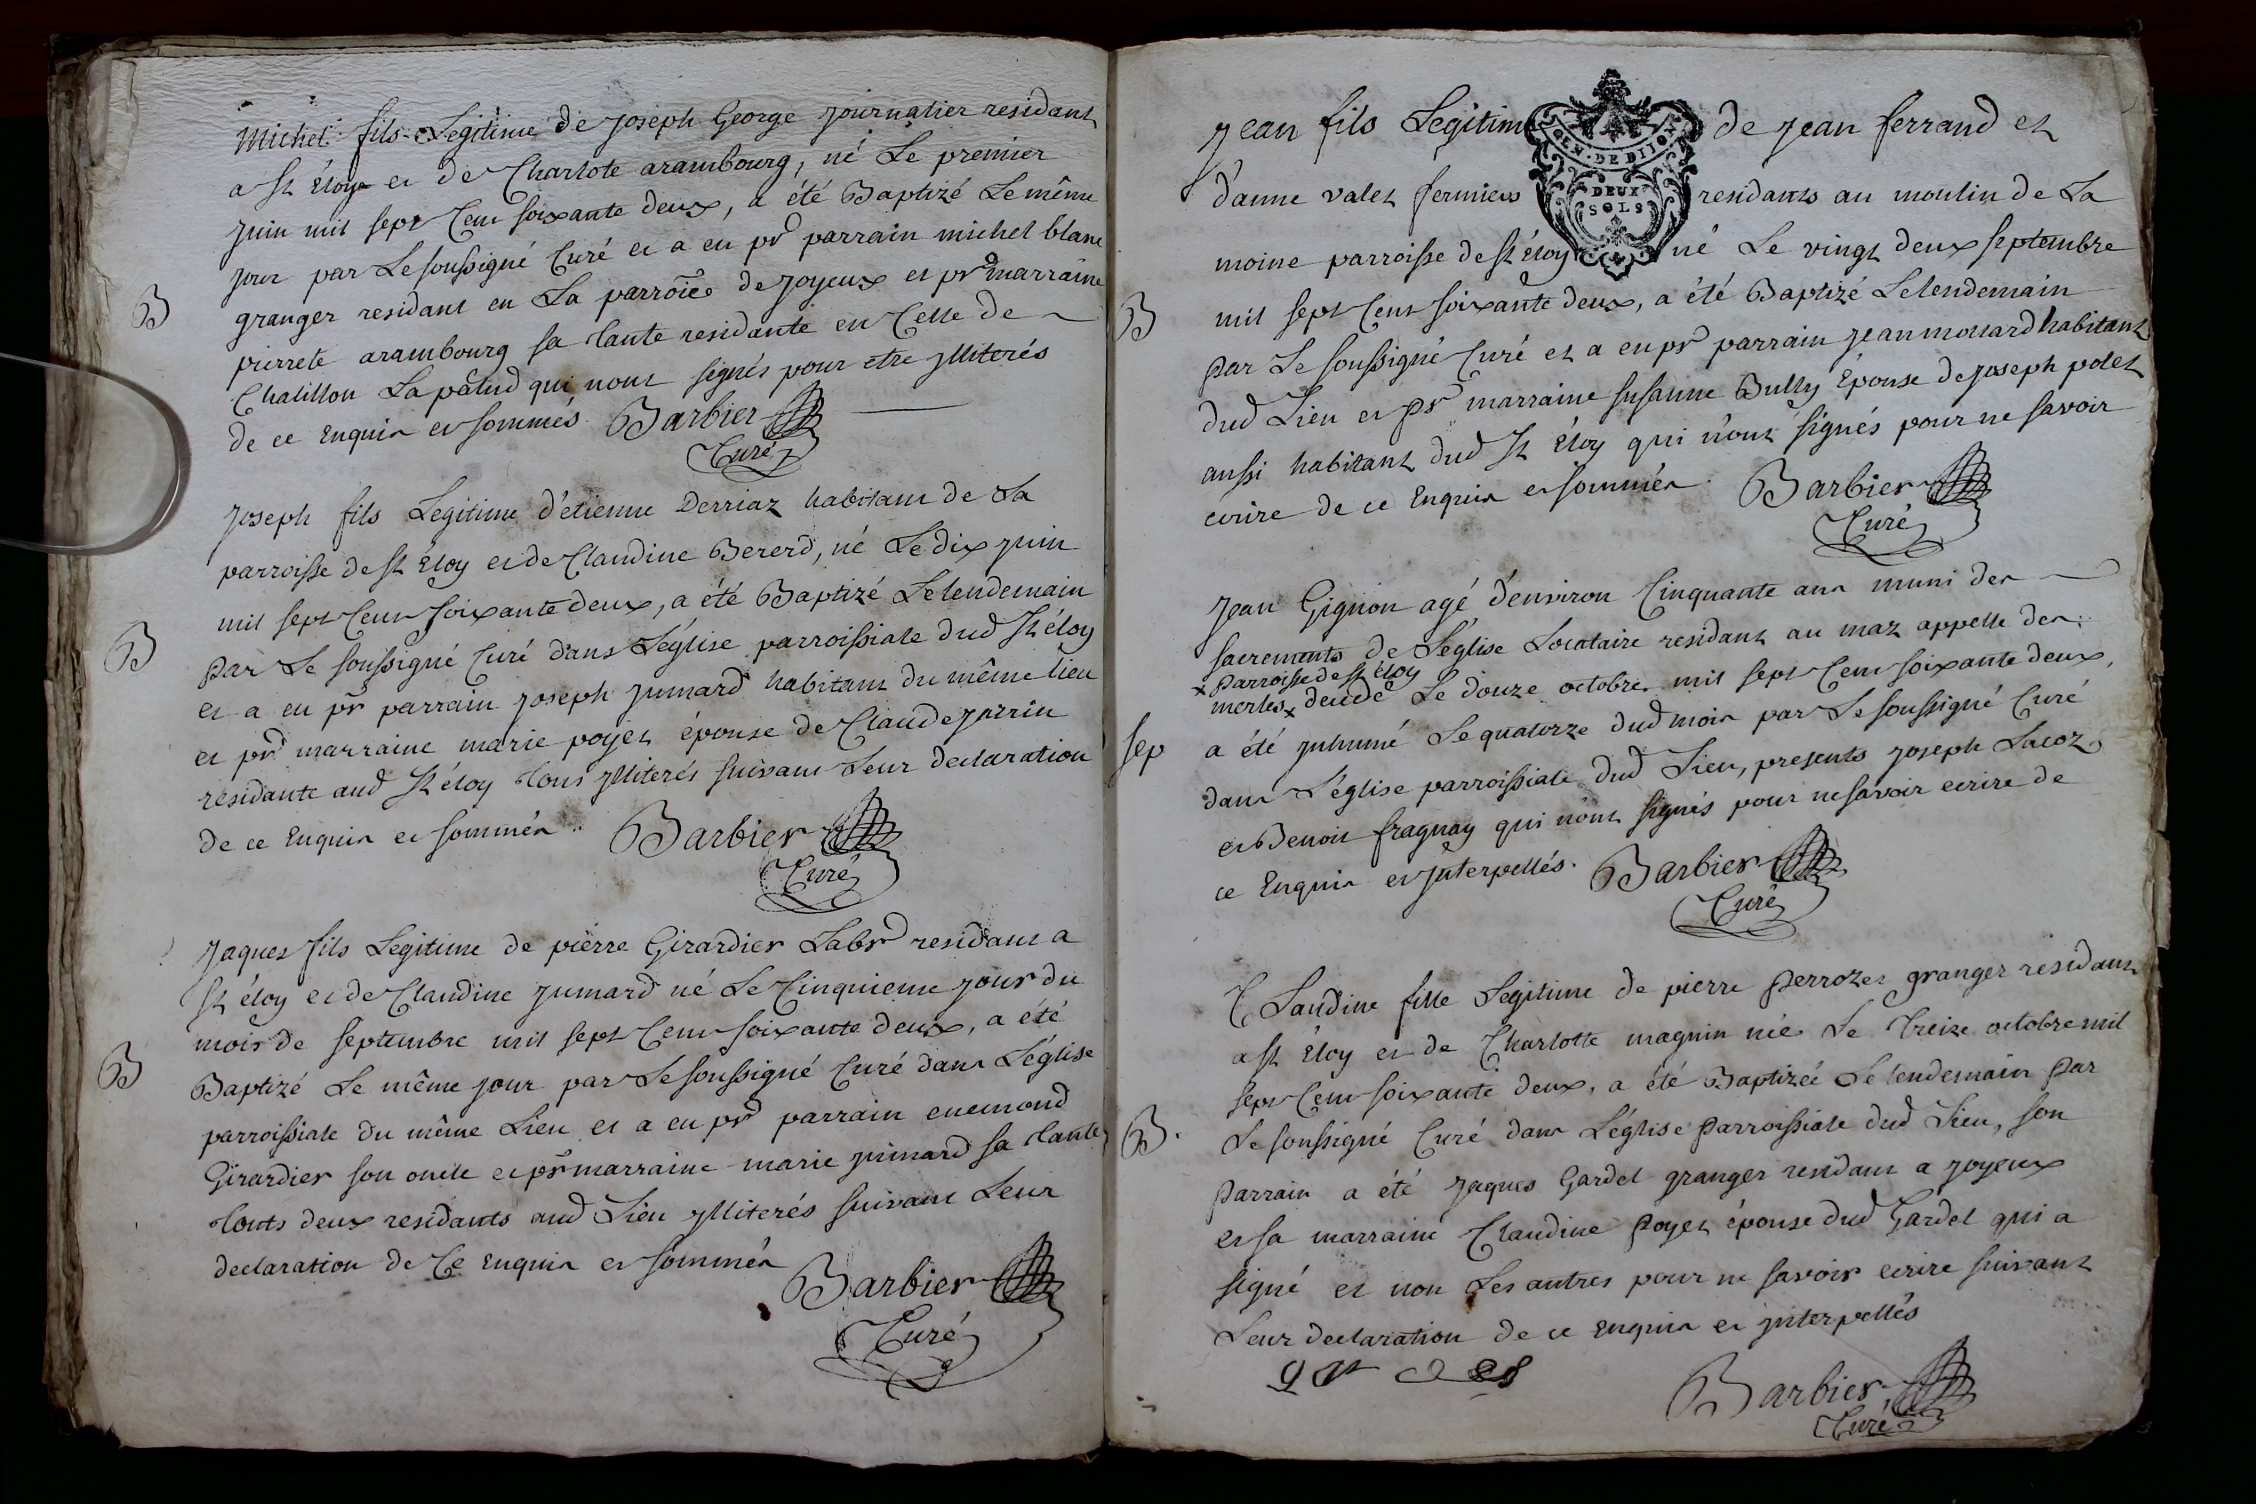 Michel fils Legitime de Joseph George Journalier residant
a St Eloy et de Charlote arambourg, né Le premier
Juin mil sept Cent soixante deux, a été Baptizé Le même
Jour par Le soussigné Curé et a eu pr parrain michel blanc
granger residant en La parroice de Joyeux et pr marraine
pierrete arambourg sa tante residante en Celle de
B
Chatillon La palud qui n'ont signés pour etre Illiterés
de ce Enquis et sommés Barbier
Curé
Joseph fils Legitime d'étienne Derriaz habitant de La
parroisse de St Eloy et de Claudine Bererd, né Le dix Juin
mil sept Cent soixante deux, a été Baptizé Le lendemain
B
par Le soussigné Curé dans L'église parroissiale dud St éloy
et a eu pr parrain Joseph Jumard habitant du même lieu
et pr marraine marie poyet épouse de Claude Jarrin
residante aud St éloy tous Illiterés suivant Leur declaration
de ce Enquis et sommés Barbier
Curé
Jaques fils Legitime de pierre Girardier Labr residant a
St éloy et de Claudine Jumard né Le Cinquieme Jour du
mois de septembre mil sept Cent soixante deux, a été
B
Baptizé Le même jour par Le soussigné Curé dans L'église
parroissiale du même Lieu et a eu pr parrain enemond
Girardier son oncle et pr marraine marie Jumard sa tante
touts deux residants aud Lieu Illiterés suivant Leur
declaration de Ce enquis et sommés
Barbier
Curé
GEN. DE DIJON
DEUX
SOLS
Jean fils Legitime de Jean ferrand et
d'anne valet fermiers residants au moulin de La
moine parroisse de St éloy né Le vingt deux septembre
B
mil sept Cent soixante deux, a été Baptizé Le lendemain
par Le soussigné Curé et a eu pr parrain Jean mollard habitant
dud Lieu et pr marraine susanne Bully Épouse de Joseph polet
aussi habitant dud St Eloy qui n'ont signés pour ne savoir
ecrire de ce Enquis et sommés. Barbier
Curé
Jean Gignon agé d'environ Cinquante ans muni des
sacrements de L'église Locataire residant au maz appelle des
x parroisse de St éloy
merles x decedé Le douze octobre mil sept Cent soixante deux,
sep
a été Inhumé Le quatorze dud mois par Le soussigné Curé
dans L'église parroissiale dud Lieu, presents Joseph Lacoz
et Benoit fraguay qui n'ont signés pour ne savoir ecrire de
ce Enquis et Interpellés. Barbier
Curé
Claudine fille Legitime de pierre perrozet granger residant
a St Eloy et de Charlotte magnin née Le Treize octobre mil
sept Cent soixante deux, a été Baptizée Le lendemain par
B.
Le soussigné Curé dans L'église parroissiale dud Lieu, son
parrain a été Jaques Gardet granger residant a Joyeux
et sa marraine Claudine poyet épouse dud Gardet qui a
signé et non Les autres pour ne savoir ecrire suivant
Leur declaration de ce enquis et interpellés
Barbier
Curé